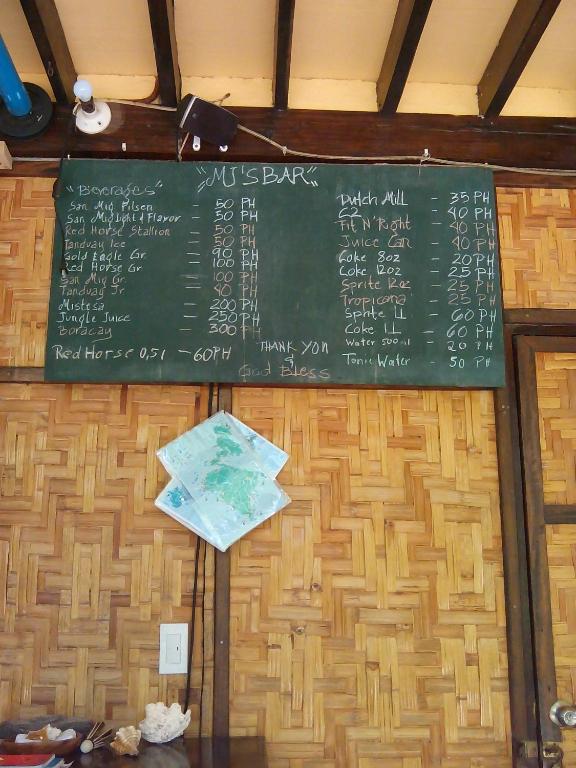 "MJ'S BAR"
"Beverages"
San Mig Pilsen - 50 PH
San Mig Light & Flavor - 50 PH
Red Horse Stallion - 50 PH
Tanduay Ice - 50 PH
Gold Eagle Gr. - 90 PH
Red Horse Gr. - 100 PH
San Mig Gr - 100 PH
Tanduay Jr - 40 PH
Mistesa - 200 PH
Jungle Juice - 250 PH
Boracay - 300 PH
Red Horse 0,5l - 60PH
THANK YOU
&
God Bless
Dutch Mill - 35 PH
C2 - 40 PH
Fit N' Right - 40 PH
Juice Can - 40 PH
Coke 8oz - 20 PH
Coke 12oz - 25 PH
Sprite 12oz - 25 PH
Tropicana - 25 PH
Sprite 1L - 60 PH
Coke 1L - 60 PH
Water 500ml - 20 PH
Tonic Water 50 PH